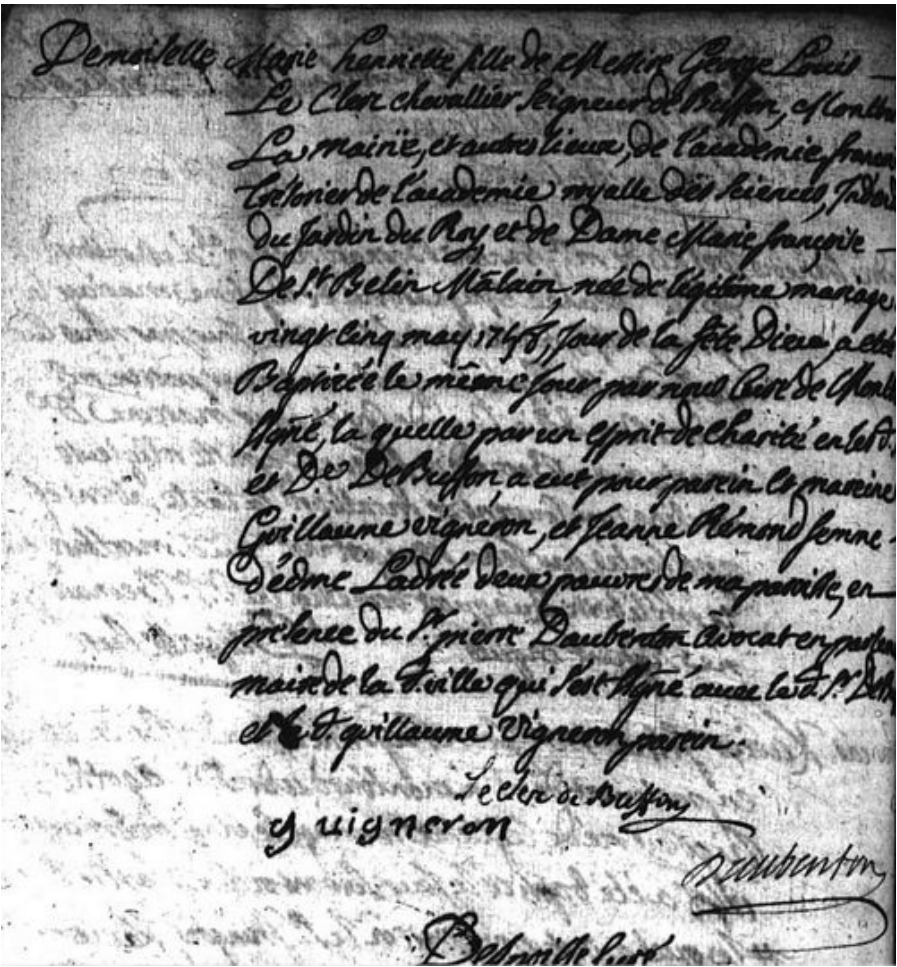 Demoiselle Marie henriette fille de Messire George Louis
Le Clerc chevallier Seigneur de Buffon, Montb
La mairie, et autres lieux, de l'academie, francoi
trésorier de l'academie royalle des Sciences, Intend
du Jardin du Roy, et de Dame Marie françoise
De St Belin Mâlain, née de légitime mariage
vingt cinq may 17 , Jour de la fête Dieu, a eté
Baptisée le même Jour par nous Curé de Montb
signé, la quelle par un esprit de Charité en led. S.
et De De Buffon, a eut pour parein et mareine
Guillaume vigneron, et Jeanne Rémond femme
d'édme Ladrée deux pauvres de ma paroisse, en
présence du Sr pierre Daubenton avocat en parlem
maire de la d. ville qui s'est signé avec le d. Sr DeBu
et le d. guillaume Vigneron parein.
Leclerc de Buffon
g uigneron
Daubenton
curé